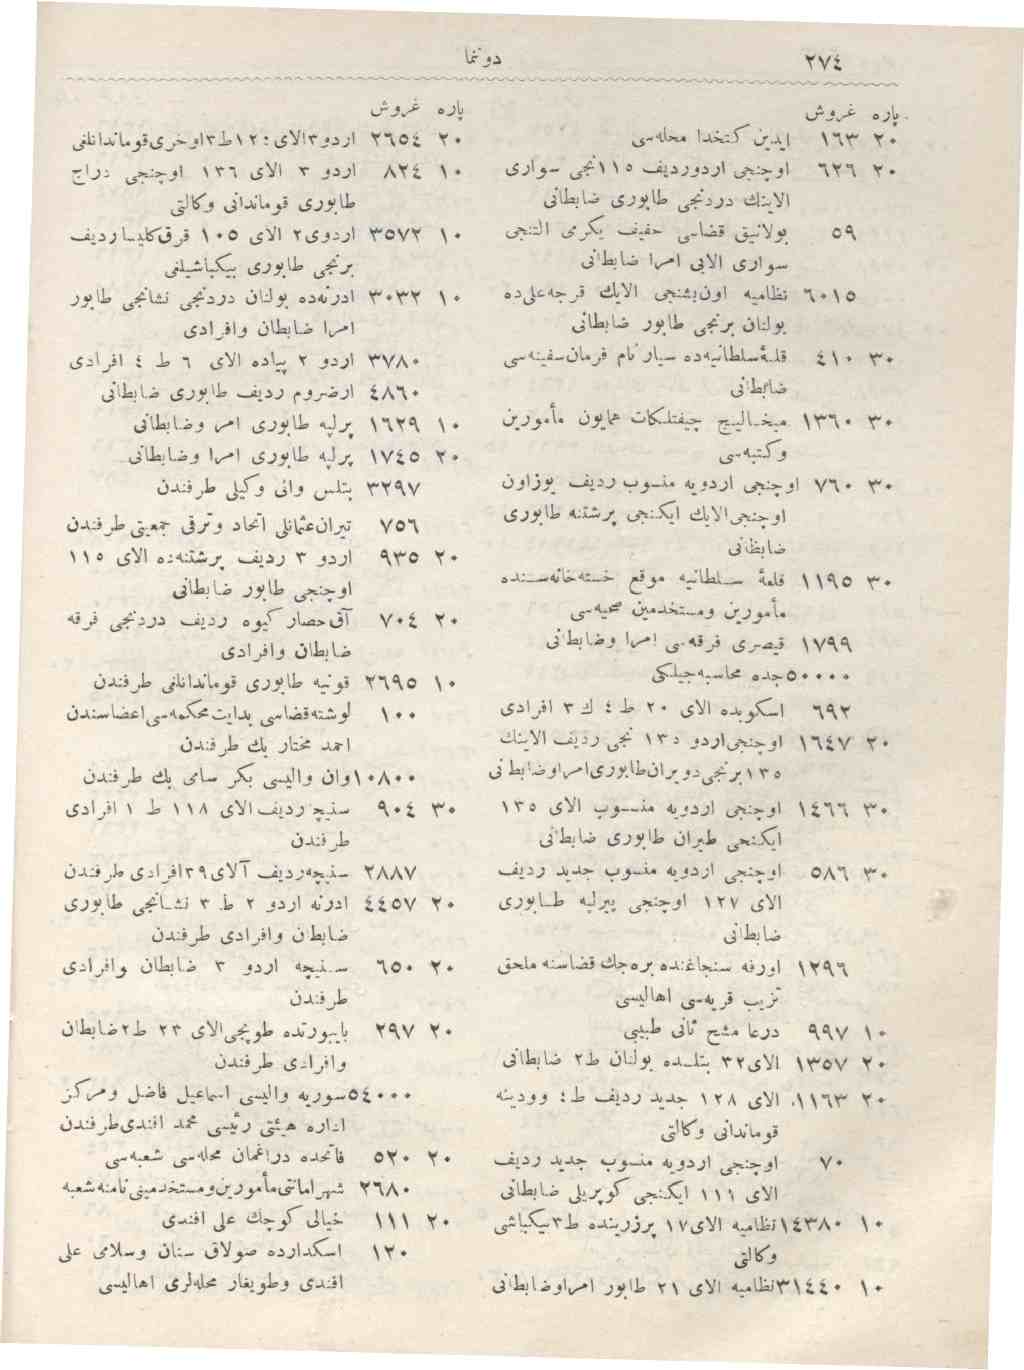 ٢٧٤
دوننما
پاره غروش
٢٠ ١٦٣ ايدين كتخدا محله‌سی
٢٠ ٦٢٦ اوچنجی اردوردیف ١١٥نجی سواری
الاینك دردنجی طابوری ضابطانی
٥٩ بولانیق قضاسی خفیف یكرمی التنجی
سواری الایی امرا ضابطانی
٦٠١٥ نظامیه اون‌بشنجی الایك قرجه‌علی‌ده
بولنان برنجی طابور ضابطانی
٣٠ ٤١٠ قلعۀسلطانیه‌ده سیار نام فرمان‌سفینه‌سی
ضابطانی
٣٠ ١٣٦٠ میخالیچ چیفتلكات همایون مأمورین
وكتبه‌سی
٣٠ ٧٦٠ اوچنجی اردویه منسوب ردیف یوزاون
اوچنجی‌الایك ایكنجی پرشتنه طابوری
ضابطانی
٣٠ ١١٩٥ قلعۀ سلطانیه موقع خسته‌خانه‌سنده
مأمورین ومستخدمین صحیه‌سی
١٧٩٩ قیصری فرقه‌سی امرا وضابطانی
٥٠٠٠٠جده محاسبه‌جیلكی
٦٩٢ اسكوبده الای ٢٠ ط ٤ ك ٣ افرادی
٢٠ ١٦٤٧ اوچنجی‌اردو د١٣ نجی ردیف الاینك
١٣٥برنجی‌دویران‌طابوری‌امراوضابطانی
٣٠ ١٤٦٦ اوچنجی اردویه منسوب الای ١٣٥
ایكنجی طیران طابوری ضابطانی
٣٠ ٥٨٦ اوچنجی اردویه منسوب جدید ردیف
الای ١٢٧ اوچنجی پیرلپه طابوری
ضابطانی
١٢٩٦ اورفه سنجاغنده بره‌جك قضاسنه ملحق
نزیب قریه‌سی اهالیسی
١٠ ٩٩٧ درعا مشح ثانی طبیبی
٢٠ ١٣٥٧ الای٣٢ بتلسده بولنان ط٢ ضابطانی
٢٠ ١١٦٣ الای ١٢٨ جدید ردیف ط٤ وودینه
قوماندانی وكالتی
٧٠ اوچنجی اردویه منسوب جدید ردیف
الای ١١١ ایكنجی كوپریلی ضابطانی
١٠ ١٤٣٨٠نظامیه الای١٧ پرزرینده ط٣بیكباشی
وكالتی
١٠ ٣١٤٤٠نظامیه الای ٢١ طابور امراوضابطانی
پاره غروش
٢٠ ٢٦٥٤ اردو٣الای:١٢ط٣اوخری‌قوماندانلغی
١٠ ٨٢٤ اردو ٣ الای ١٣٦ اوچنجی دراج
طابوری قوماندانی وكالتی
١٠ ٣٥٧٢ اردوی٢ الای ١٠٥ قرق‌كلیسا ردیف
برنجی طابوری بیكباشیلغی
١٠ ٣٠٣٢ ادرنه‌ده بولنان دردنجی نشانجی طابور
امرا ضابطان وافرادی
٣٧٨٠ اردو ٢ پیاده الای ٦ ط ٤ افرادی
٤٨٦٠ ارضروم ردیف طابوری ضابطانی
١٠ ١٦٢٩ پرلپه طابوری امرا وضابطانی
٢٠ ١٧٤٥ پرلپه طابوری امرا وضابطانی
٣٢٩٧ بتلس والی وكیلی طرفندن
٧٥٦ تیران‌عثمانلی اتحاد وترقی جمعیتی طرفندن
٢٠ ٩٣٥ اردو ٣ ردیف پرشتنه‌ده الای ١١٥
اوچنجی طابور ضابطانی
٢٠ ٧٠٤ آق‌حصار كیوه ردیف دردنجی فرقه
ضابطان وافرادی
١٠ ٢٦٩٥ قونیه طابوری قوماندانلغی طرفندن
١٠٠ لوشنه‌قضاسی بدایت‌محكمه‌سی‌اعضاسندن
احمد مختار بك طرفندن
١٠٨٠٠وان والیسی بكر سامی بك طرفندن
٣٠ ٩٠٤ سنیچه‌ردیف‌الای ١١٨ ط ١ افرادی
طرفندن
٢٨٨٧ سنیچه‌ردیف آلای٣٩افرادی طرفندن
٢٠ ٤٤٥٧ ادرنه اردو ٢ ط. ٣ نشانجی طابوری
ضابطان وافرادی طرفندن
٢٠ ٦٥٠ سنیچه اردو ٣ ضابطان وافرادی
طرفندن
٢٠ ٢٩٧ بایبورتده طوپجی‌الای ٢٣ ط٢ضابطان
وافرادی طرفندن
٥٤٠٠٠سوریه والیسی اسماعیل فاضل ومركز
اداره هیئتی رئیسی محمد افندی‌طرفندن
٢٠ ٥٢٠ فاتحده دراغمان محله‌سی شعبه‌سی
٢٦٨٠ شهرامانتی‌مأمورین‌ومستخدمینی‌نامنه‌شعبه
٢٠ ١١١ خیالی كوچك علی افندی
١٢٠ اسكدارده صولاق سنان وسلامی علی
افندی وطویغار محله‌لری اهالیسی